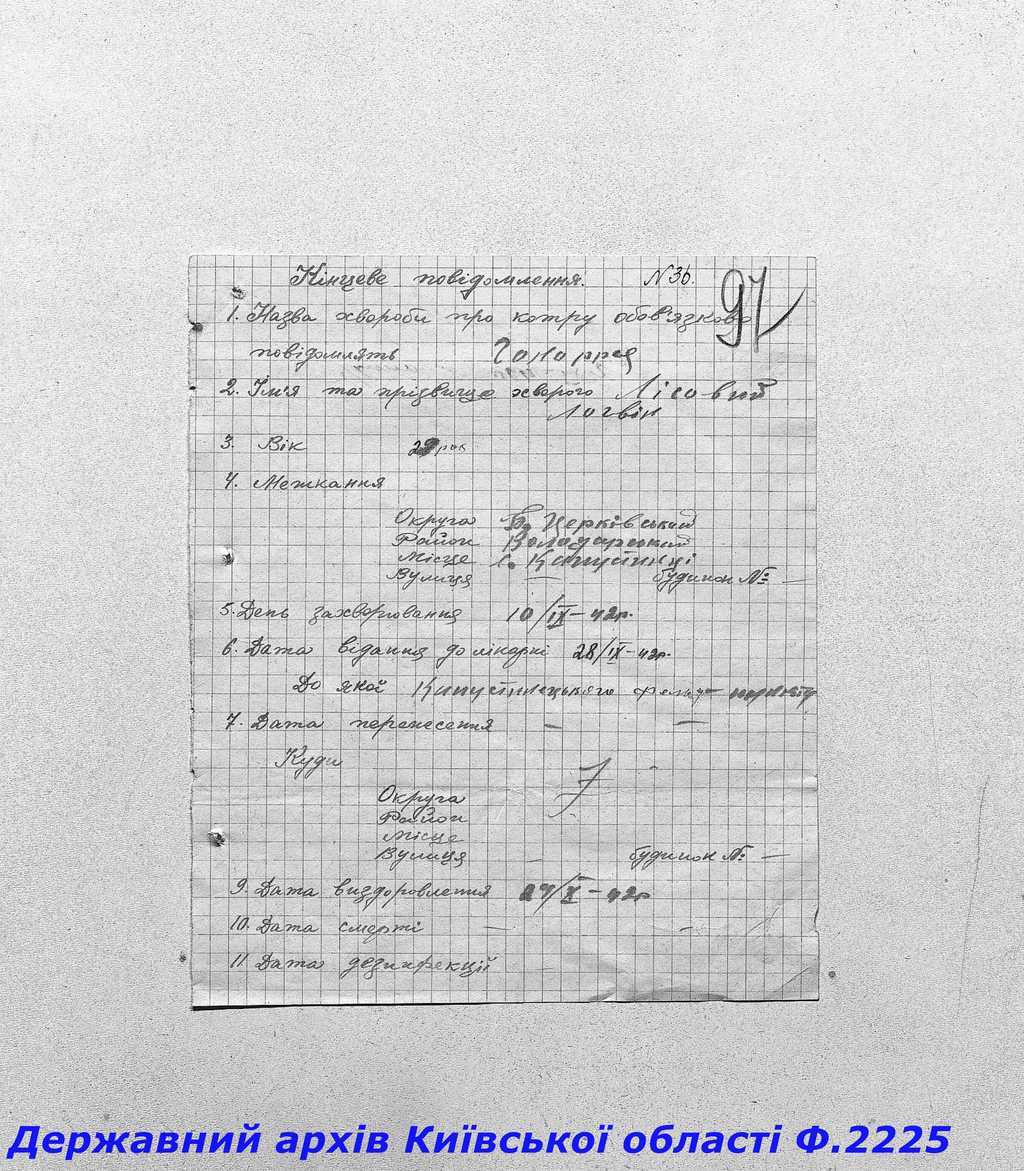 Кінцеве повідомлення. N 36.
97
1. Назва хвороби про котру обов'язково
повідомлять Гонорреа
2. Ім'я та прізвище хворого Лісовий
Логвін
3. Вік 29 рок
4. Межкання
Округа Б. Церківський
Район Володарський
Місце с. Капустинці
Вулиця — будинок № —
5. День захворювання 10/IX – 42р.
6. Дата відання до лікарні 28/IX – 42р.
До якої Капустинецького фельд – пункту
7. Дата перенесення — —
Куди
Округа
Район
Місце
Вулиця — будинок № —
9. Дата виздоровлення 27/X – 42р
10. Дата смерті — —
11. Дата дезинфекції —
Державний архів Київської області Ф.2225